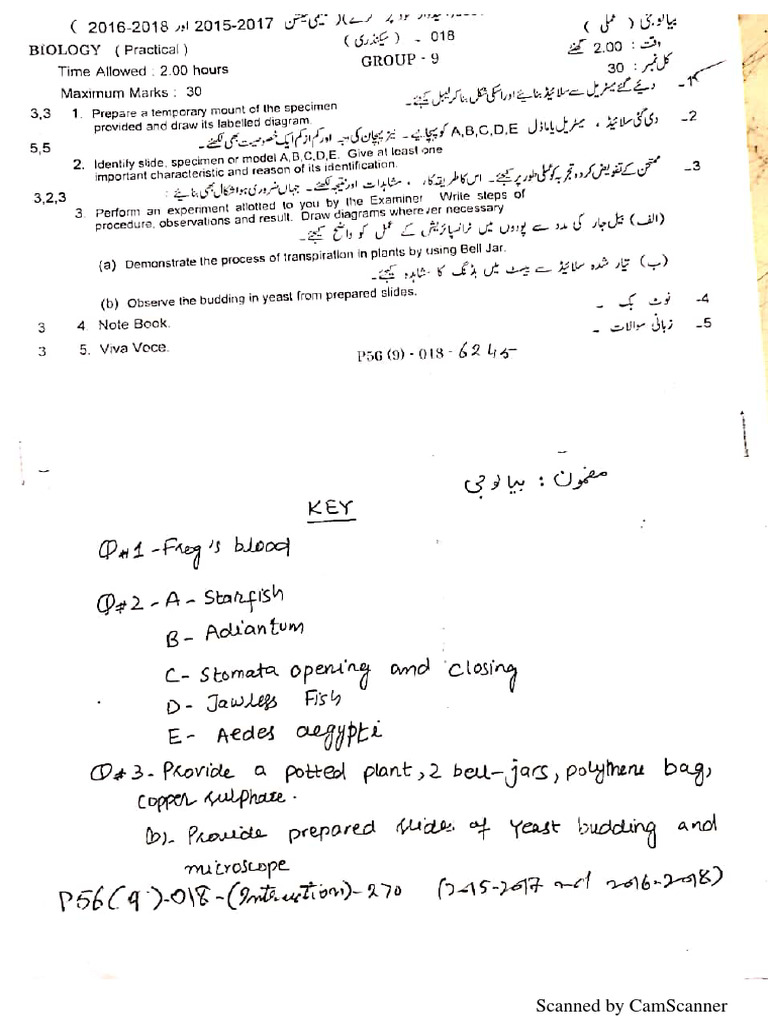 ( 2016-2018 اور 2015-2017
بیالوجی ( عملی )
BIOLOGY ( Practical )
018 ـ ( سیکنڈری )
وقت : 2.00 گھنٹے
Time Allowed : 2.00 hours
GROUP - 9
کل نمبر : 30
Maximum Marks : 30
1- دیئے گئے میٹریل سے سلائیڈ بنائیے اور اسکی شکل بنا کر لیبل کیجئے۔
3,3 1. Prepare a temporary mount of the specimen
provided and draw its labelled diagram.
2- دی گئی سلائیڈ ، میٹریل یا ماڈل A,B,C,D,E کو پہچانیے۔ نیز پہچان کی وجہ اور کم از کم ایک خصوصیت بھی لکھئے۔
5,5 2. Identify slide, specimen or model A,B,C,D,E. Give at least one
important characteristic and reason of its identification.
3- ممتحن کے تفویض کردہ تجربہ کو عملی طور پر کیجئے۔ اس کا طریقہ کار ، مشاہدات اور نتیجہ لکھئے۔ جہاں ضروری ہو اشکال بھی بنائیے :
3,2,3 3. Perform an experiment allotted to you by the Examiner Write steps of
procedure, observations and result. Draw diagrams wherever necessary
(الف) بیل جار کی مدد سے پودوں میں ٹرانسپائریشن کے عمل کو واضح کیجئے۔
(a) Demonstrate the process of transpiration in plants by using Bell Jar.
(ب) تیار شدہ سلائیڈ سے ییسٹ میں بڈنگ کا مشاہدہ کیجئے۔
(b) Observe the budding in yeast from prepared slides.
4- نوٹ بک ۔
3 4. Note Book.
5- زبانی سوالات ۔
3 5. Viva Voce.
P56 (9) - 018 - 6245
مضمون : بیالوجی
KEY
Q#1 - Frog's blood
Q#2 - A - Starfish
B - Adiantum
C - Stomata opening and closing
D - Jawless Fish
E - Aedes aegypti
Q#3 - Provide a potted plant, 2 bell-jars, polythene bag,
copper sulphate.
(b) - Provide prepared slides of Yeast budding and
microscope
P56(9)-018-(Intruction)-270 (2015-2017 and 2016-2018)
Scanned by CamScanner